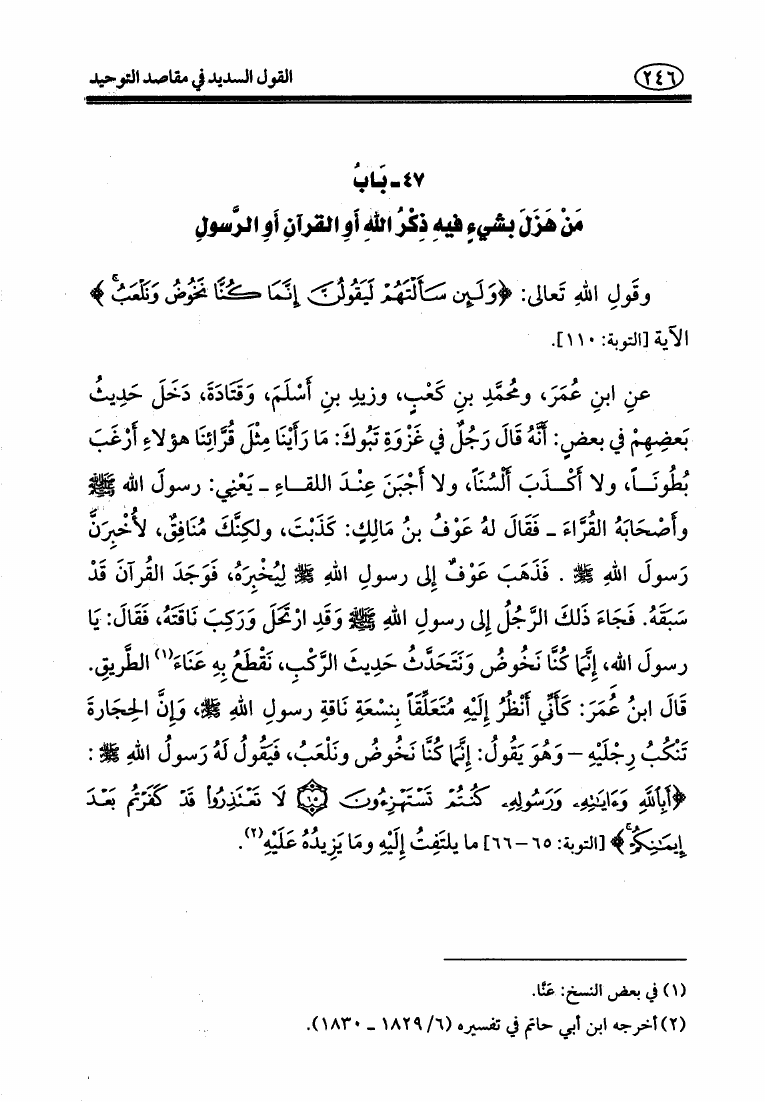 ٢٤٦
القول السديد في مقاصد التوحيد
٤٧ - بَابُ
مَنْ هَزَلَ بشيءٍ فيهِ ذِكْرُ اللهِ أوِ القرآنِ أوِ الرَّسولِ
وقَولِ اللهِ تَعالى: ﴿وَلَئِن سَأَلْتَهُمْ لَيَقُولُنَّ إِنَّمَا كُنَّا نَخُوضُ وَنَلْعَبُ ۚ﴾
الآية [التوبة: ١١٠].
عنِ ابنِ عُمَرَ، ومُحمَّدِ بنِ كَعْبٍ، وزيدِ بنِ أَسْلَمَ، وقَتَادَةَ، دَخَلَ حَدِيثُ
بَعضِهِمْ في بعضٍ: أنَّهُ قَالَ رَجُلٌ في غَزْوَةِ تَبُوكَ: مَا رَأَيْنَا مِثْلَ قُرَّائِنَا هؤلاءِ أرْغَبَ
بُطُونَـاً، ولا أكْـذَبَ ألْسُنَاً، ولا أجْبَنَ عِنْـدَ اللقـاءِ ـ يَعْنِي: رسولَ الله ﷺ
وأصْحَابَهُ القُرَّاءَ ـ فَقَالَ لهُ عَوْفُ بنُ مَالِكٍ: كَذَبْتَ، ولكِنَّكَ مُنَافِقٌ، لأُخْبِرَنَّ
رَسولَ اللهِ ﷺ . فَذَهَبَ عَوْفٌ إلى رسولِ اللهِ ﷺ لِيُخْبِرَهُ، فَوَجَدَ القُرآنَ قَدْ
سَبَقَهُ. فَجَاءَ ذَلكَ الرَّجُلُ إلى رسولِ اللهِ ﷺ وَقَدِ ارْتَحَلَ وَرَكِبَ نَاقَتَهُ، فقَالَ: يَا
رسولَ الله، إنَّمَا كُنَّا نَخُوضُ وَنَتَحَدَّثُ حَدِيثَ الرَّكْبِ، نَقْطَعُ بِهِ عَنَاءَ(١) الطَّريقِ.
قَالَ ابنُ عُمَرَ: كَأنِّي أنْظُرُ إلَيْهِ مُتَعَلِّقَاً بِنِسْعَةِ نَاقةِ رسولِ اللهِ ﷺ، وَإنَّ الحِجارةَ
تَنْكُبُ رِجْلَيْهِ – وَهُوَ يَقُولُ: إنَّمَا كُنَّا نَخُوضُ ونَلْعَبُ، فَيَقُولُ لَهُ رَسولُ اللهِ ﷺ :
﴿أَبِاللَّهِ وَءَايَـٰتِهِۦ وَرَسُولِهِۦ كُنتُمْ تَسْتَهْزِءُونَ ۝٦٥ لَا تَعْتَذِرُوا۟ قَدْ كَفَرْتُم بَعْدَ
إِيمَـٰنِكُمْ ۚ﴾ [التوبة: ٦٥ – ٦٦] ما يلتَفِتُ إلَيْهِ ومَا يَزِيدُهُ عَلَيْهِ(٢).
(١) في بعض النسخ: عَنَّا.
(٢) أخرجه ابن أبي حاتم في تفسيره (٦/ ١٨٢٩ ـ ١٨٣٠).